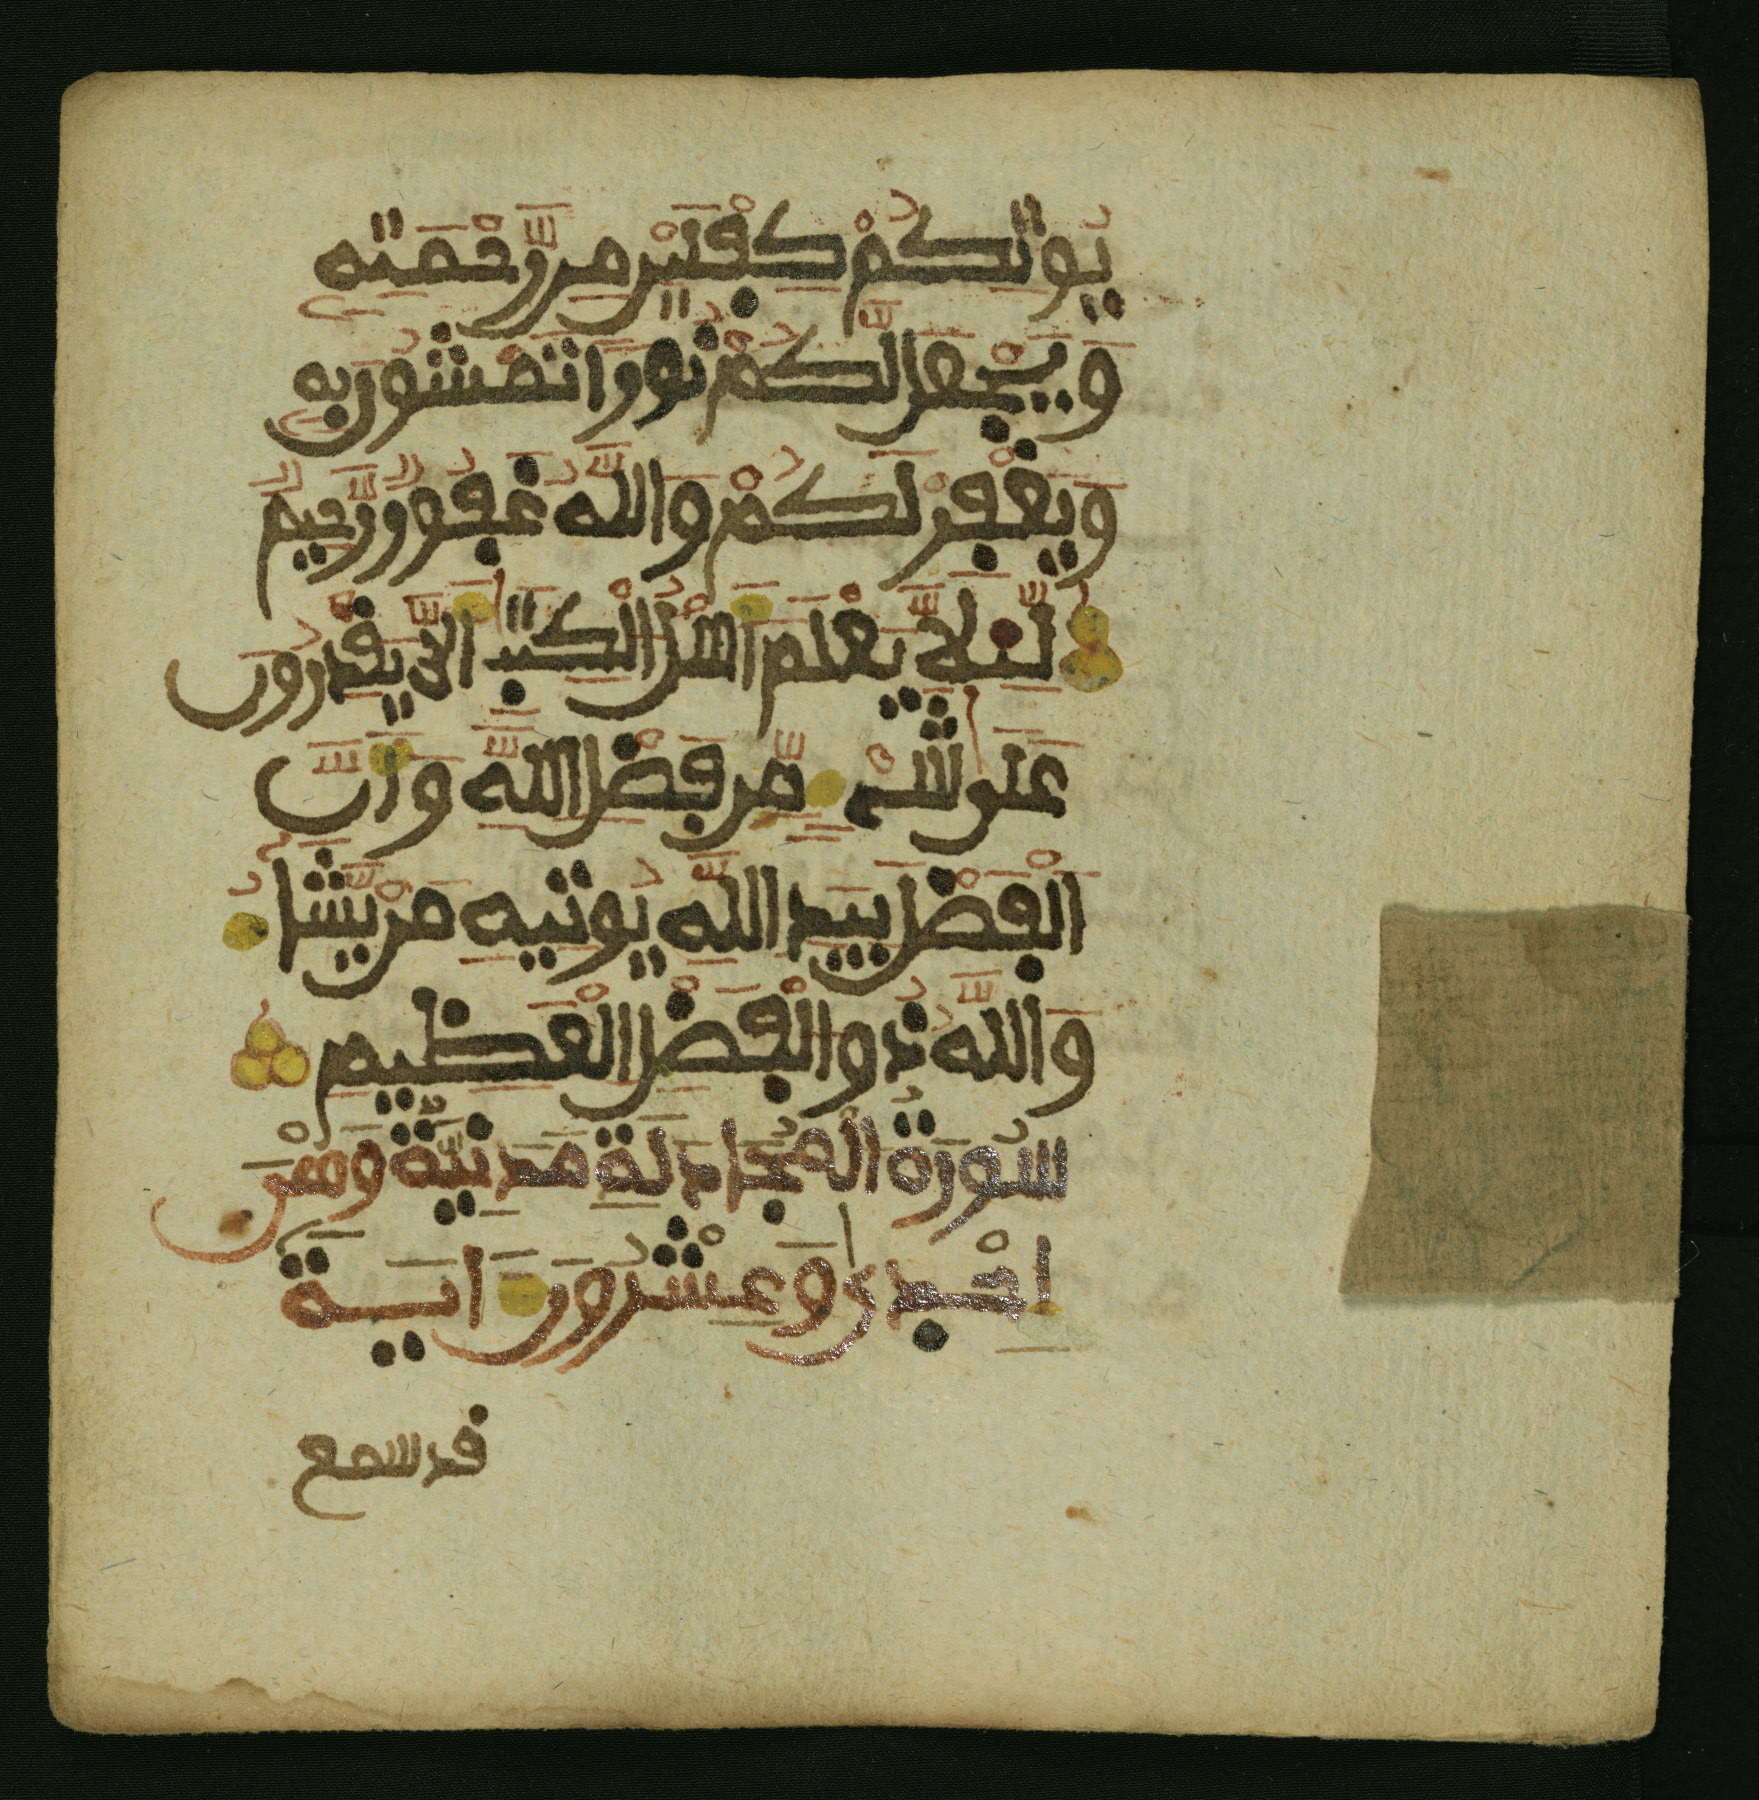 يُوتِكُمْ كِفْلَيْنِ مِن رَّحْمَتِهِ
وَيَجْعَل لَّكُمْ نُورًا تَمْشُونَ بِهِ
وَيَغْفِرْ لَكُمْ وَاللَّهُ غَفُورٌ رَّحِيمٌ
لِّئَلَّا يَعْلَمَ أَهْلُ الْكِتَٰبِ أَلَّا يَقْدِرُونَ
عَلَىٰ شَىْءٍ مِّن فَضْلِ اللَّهِ وَأَنَّ
الْفَضْلَ بِيَدِ اللَّهِ يُوتِيهِ مَنْ يَّشَاءُ
وَاللَّهُ ذُو الْفَضْلِ الْعَظِيمِ
سُورَةُ الْمُجَادِلَةِ مَدَنِيَّةٌ وَهْىَ
إِحْدَىٰ وَعِشْرُونَ ءَايَةً
قد سمع